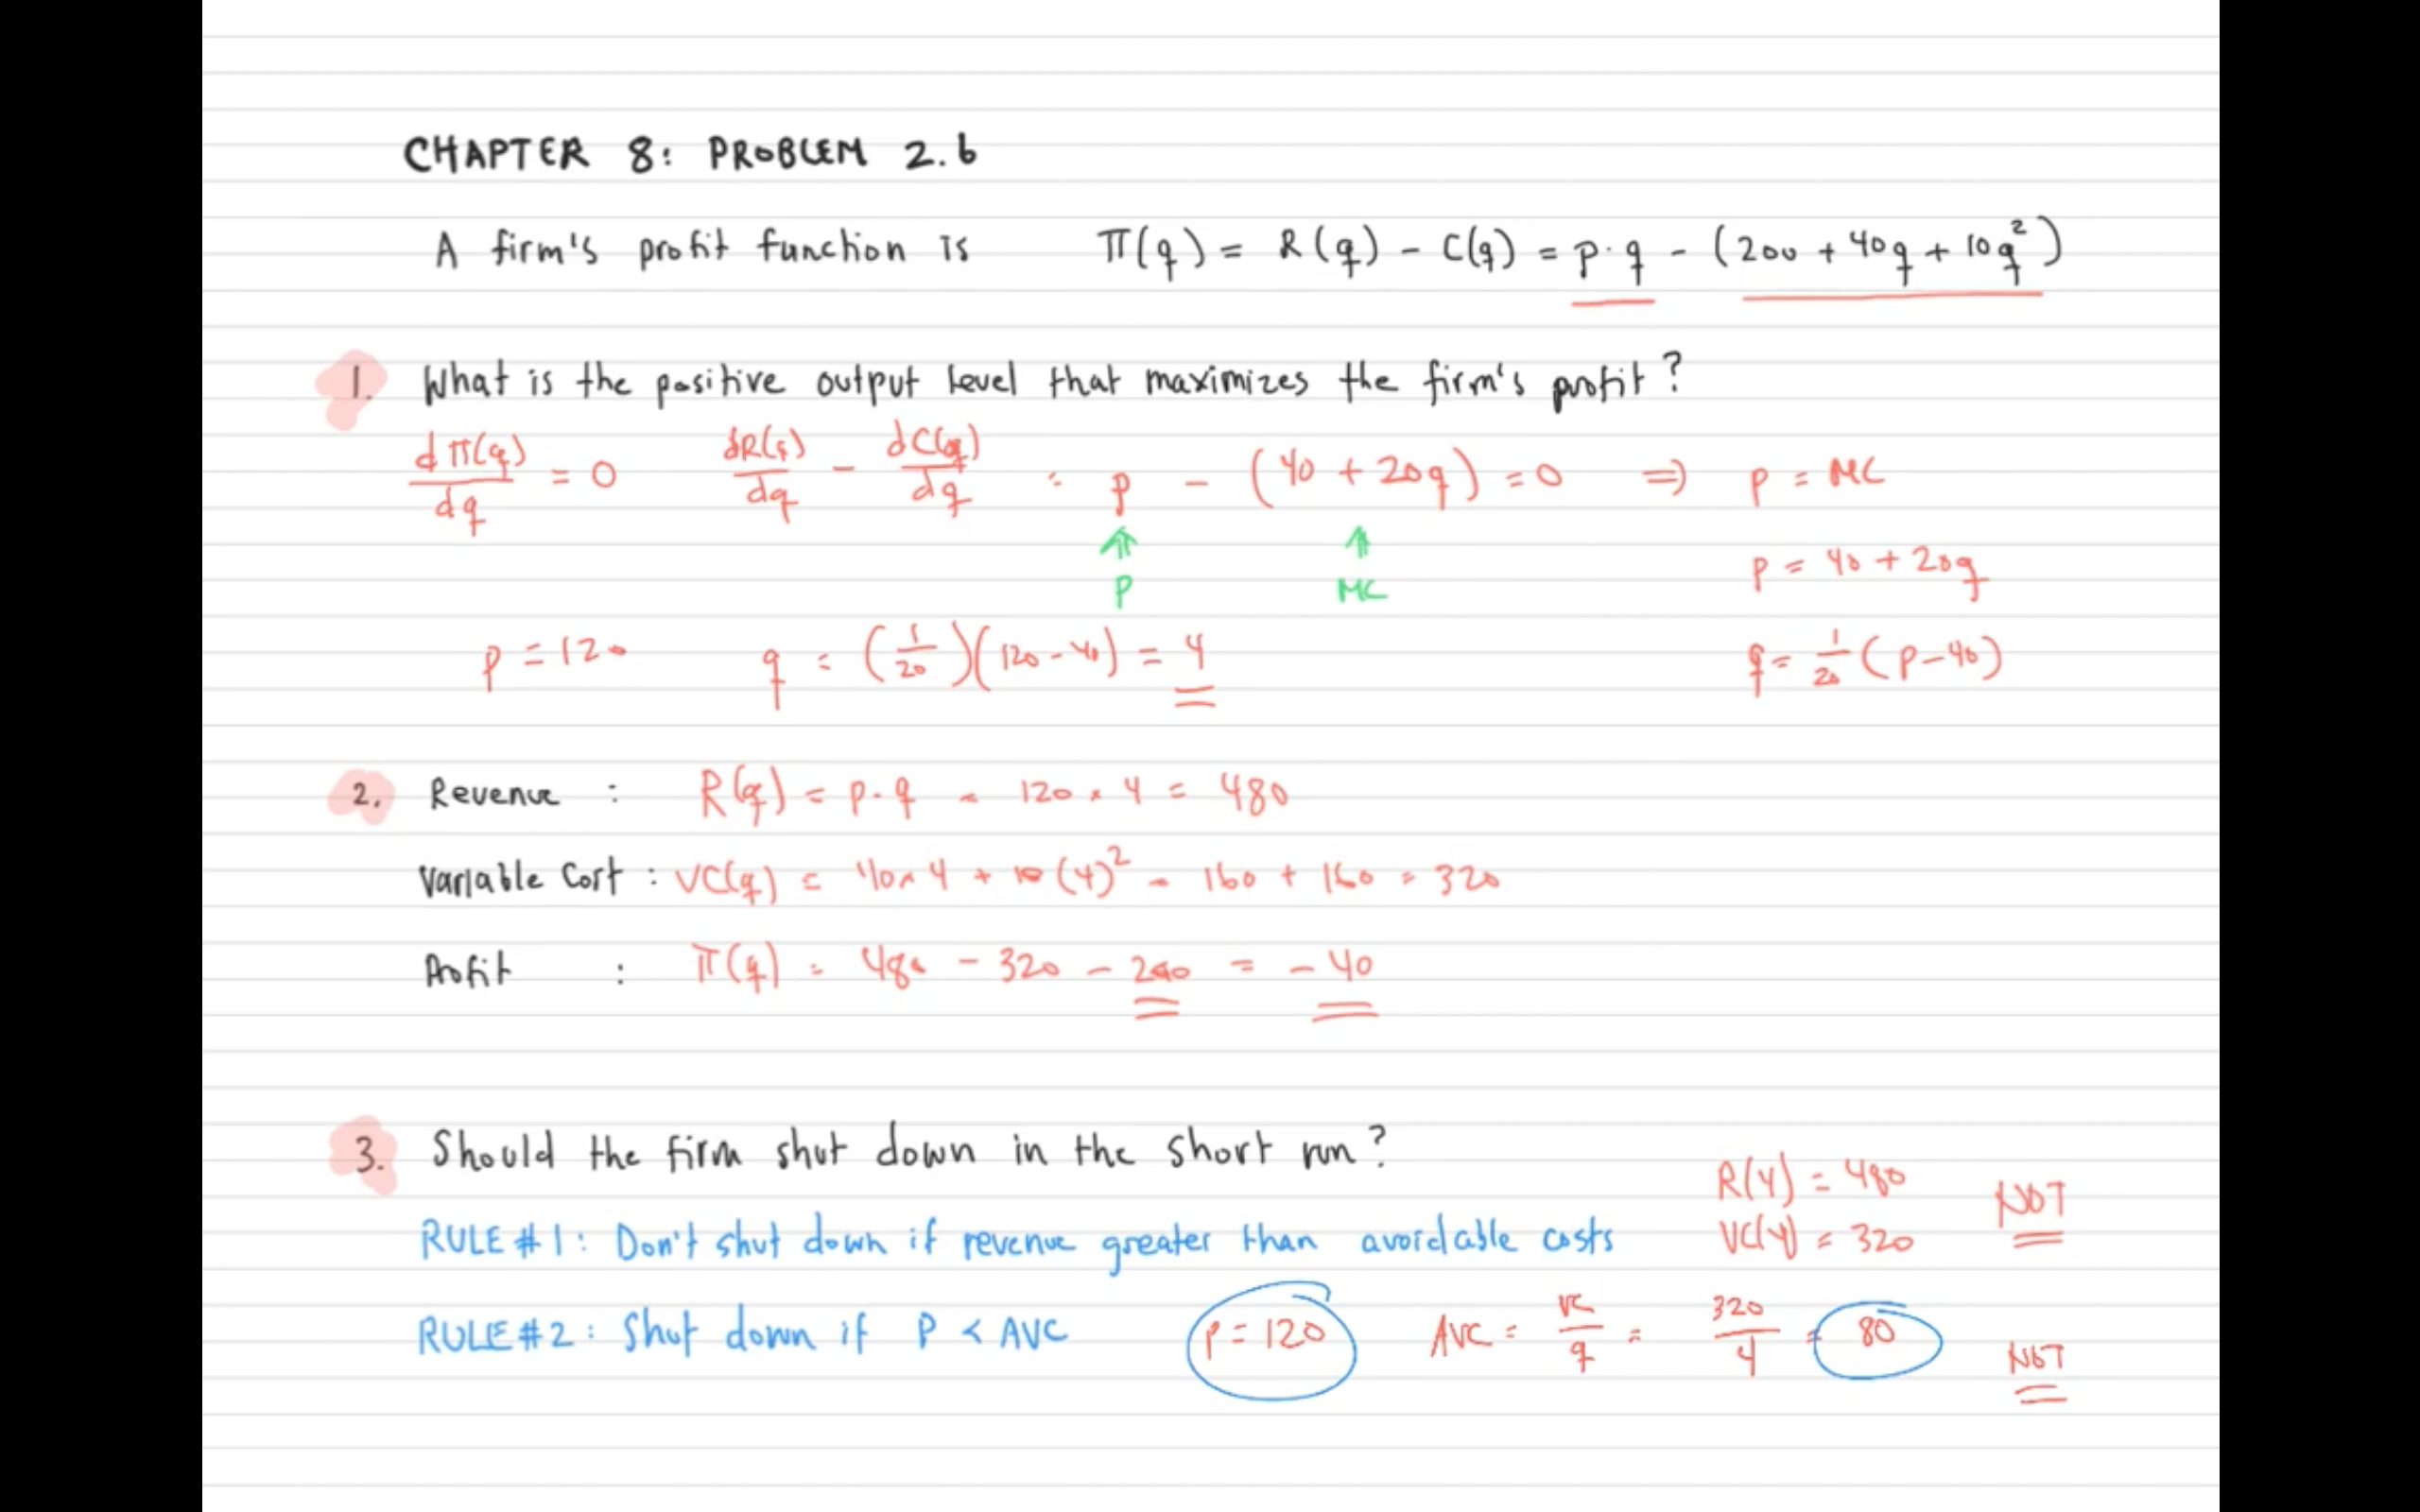 CHAPTER 8: PROBLEM 2.6
A firm's profit function is π(q) = R(q) - C(q) = p·q - (200 + 40q + 10q²)
1. What is the positive output level that maximizes the firm's profit?
dπ(q)/dq = 0 dR(q)/dq - dC(q)/dq = p - (40 + 20q) = 0 ⇒ p = MC
P MC p = 40 + 20q
p = 120 q = (1/20)(120-40) = 4 q = 1/20 (p-40)
2. Revenue : R(q) = p·q = 120 × 4 = 480
Variable Cost : VC(q) = 40×4 + 10(4)² = 160 + 160 = 320
Profit : π(q) = 480 - 320 - 200 = -40
3. Should the firm shut down in the short run?
R(4) = 480 NOT
RULE #1: Don't shut down if revenue greater than avoidable costs VC(4) = 320
RULE #2: Shut down if P < AVC p = 120 AVC = VC/q = 320/4 = 80 NOT